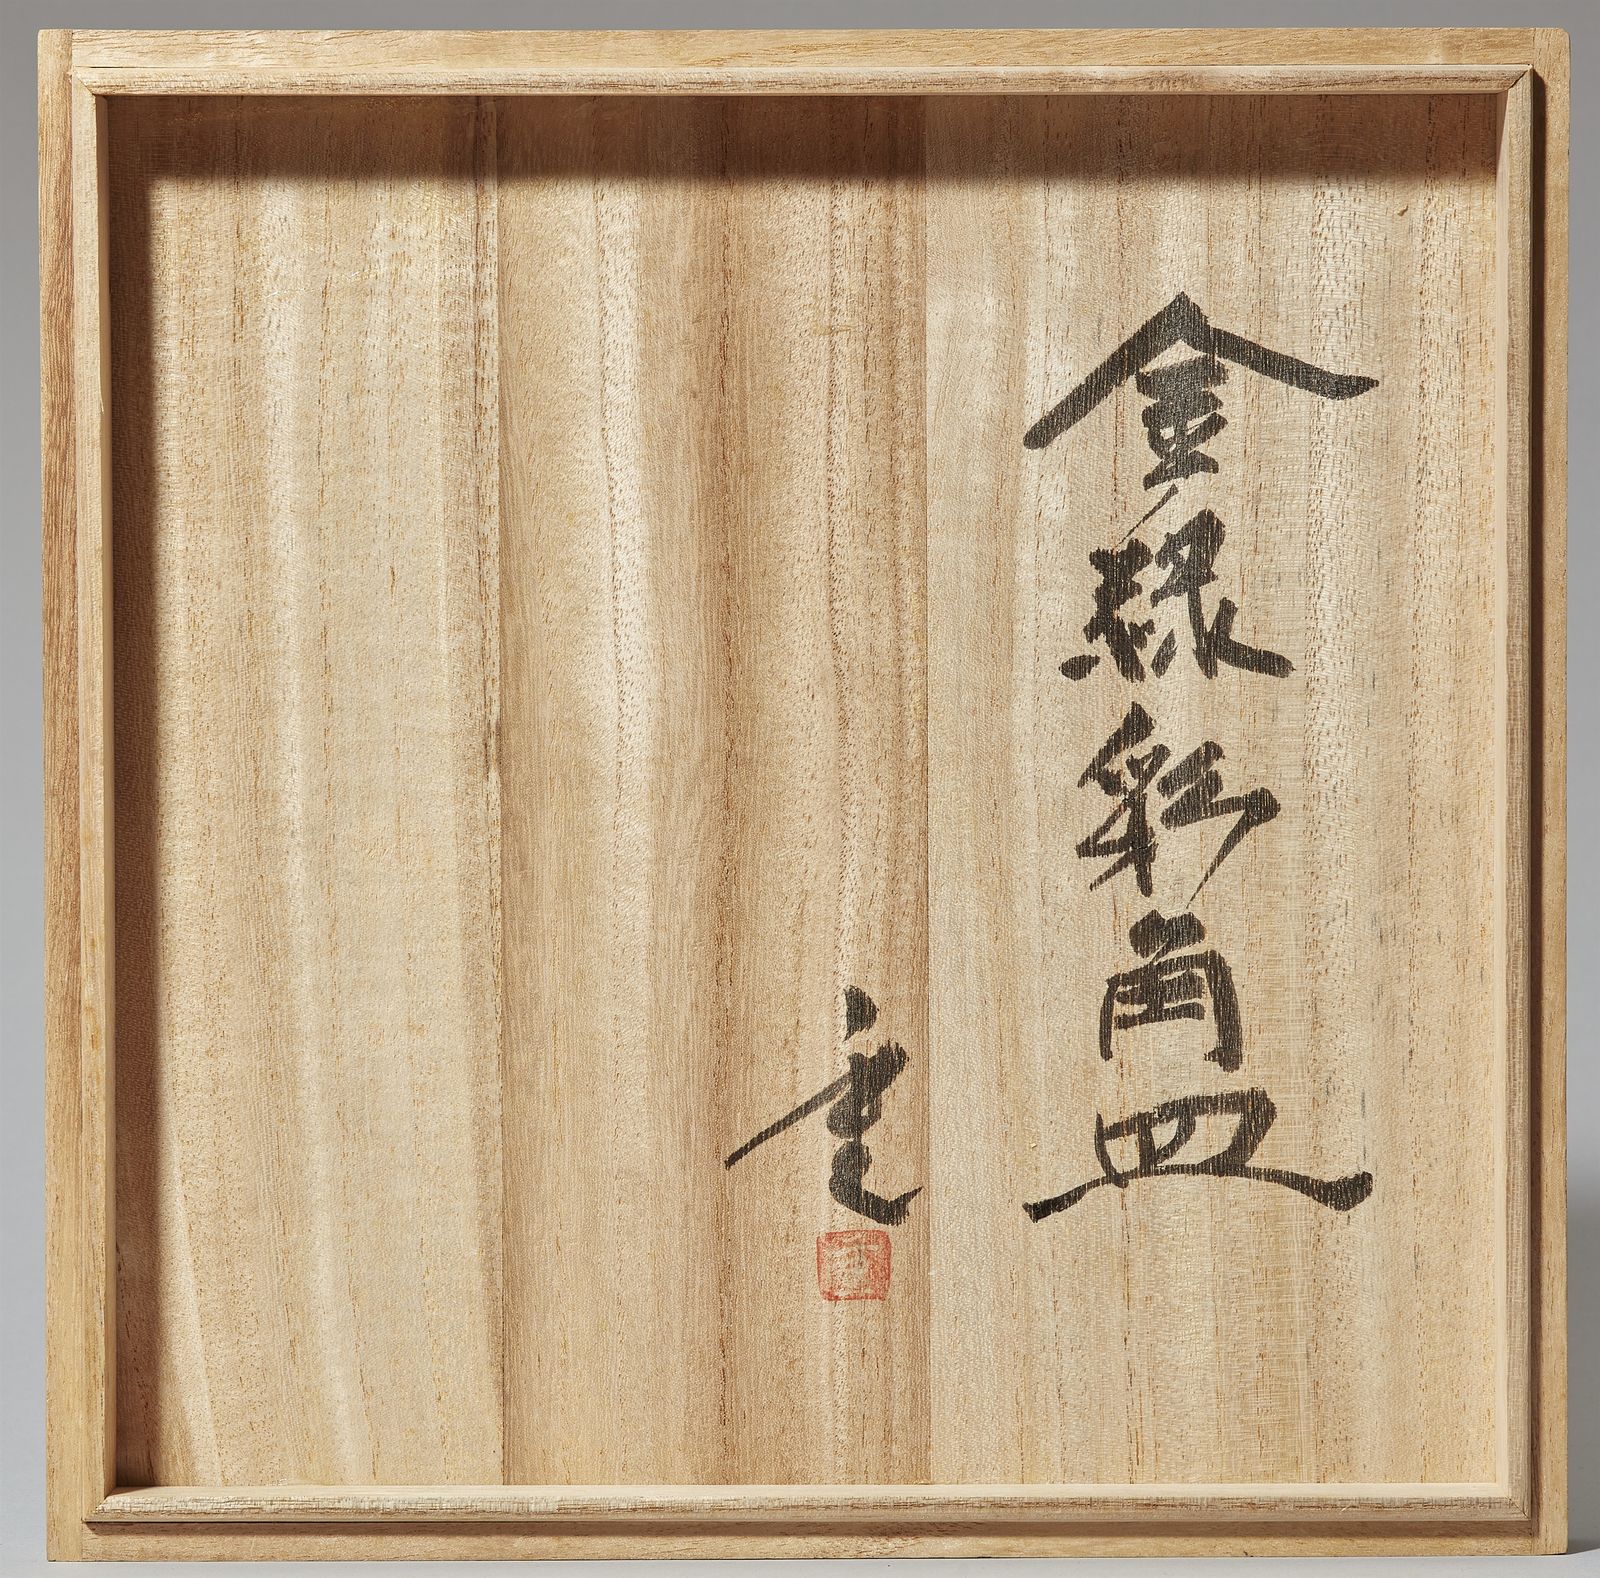 金緑彩角皿